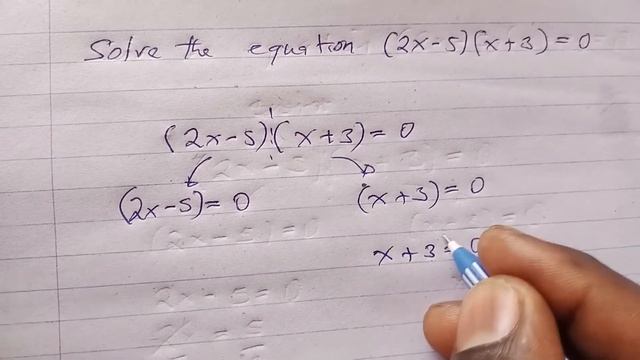 Solve the equation (2x-5)(x+3)=0
(2x-5)(x+3)=0
(2x-5)=0 (x+3)=0
x+3=0